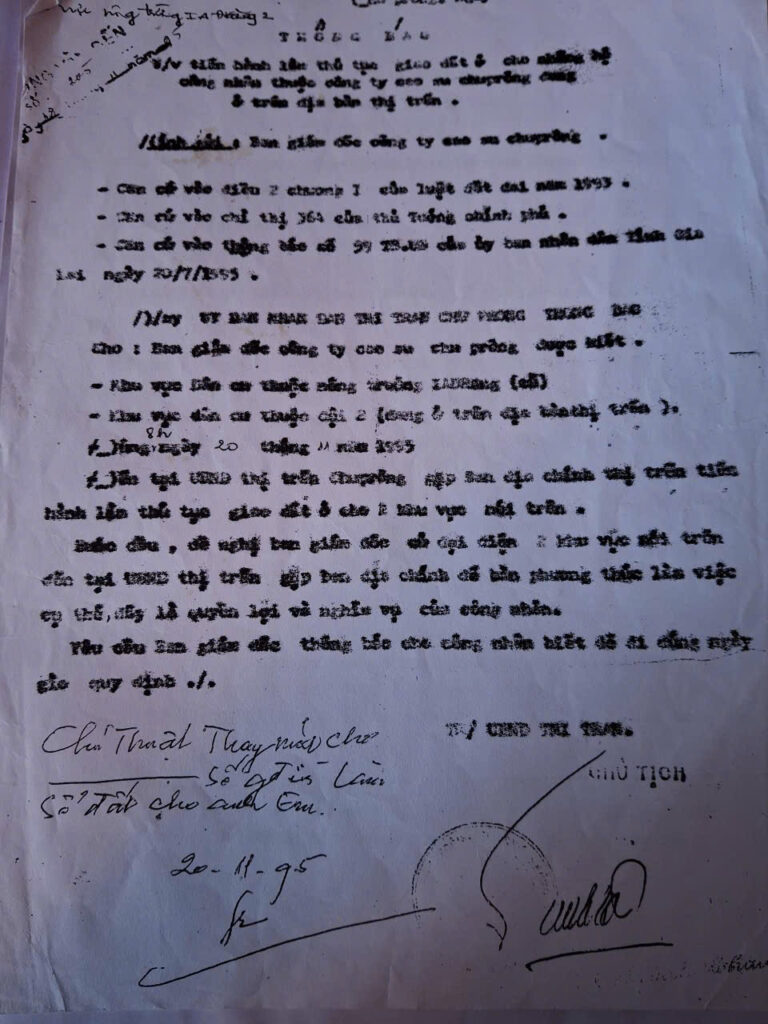 THÔNG BÁO
V/v tiến hành làm thủ tục giao đất ở cho những hộ
công nhân thuộc công ty cao su chưprông đang
ở trên địa bàn thị trấn .
Kính gửi : Ban giám đốc công ty cao su chưprông .
- Căn cứ vào điều 2 chương I của luật đất đai năm 1993 .
- Căn cứ vào chỉ thị 364 của thủ Tướng chính phủ .
- Căn cứ vào thông báo số 99 TB.UB của ủy ban nhân dân Tỉnh Gia
Lai ngày 20/7/1995 .
Nay UY BAN NHAN DAN THI TRAN CHƯ PRONG THONG BAO
Cho : Ban giám đốc công ty cao su chư prông được biết .
- Khu vực Dân cư thuộc nông trường IADRăng (cũ)
- Khu vực dân cư thuộc đội 2 (đang ở trên địa bàn thị trấn ).
Đúng 8h ngày 20 tháng 11 năm 1995
Đến tại UBND thị trấn Chưprông gặp Ban địa chính thị trấn tiến
hành làm thủ tục giao đất ở cho 2 khu vực nói trên .
Bước đầu , đề nghị ban giám đốc cử đại diện 2 khu vực nói trên
đến tại UBND thị trấn gặp ban địa chính để bàn phương thức làm việc
cụ thể, đây là quyền lợi và nghĩa vụ của công nhân.
Yêu cầu Ban giám đốc thông báo cho công nhân biết để đi đúng ngày
giờ quy định ./.
TM/ UBND THI TRAN.
CHỦ TỊCH
Chú Thuật Thay mặt cho
Số gđ
làm
Sổ đất cho anh Em.
20-11-95